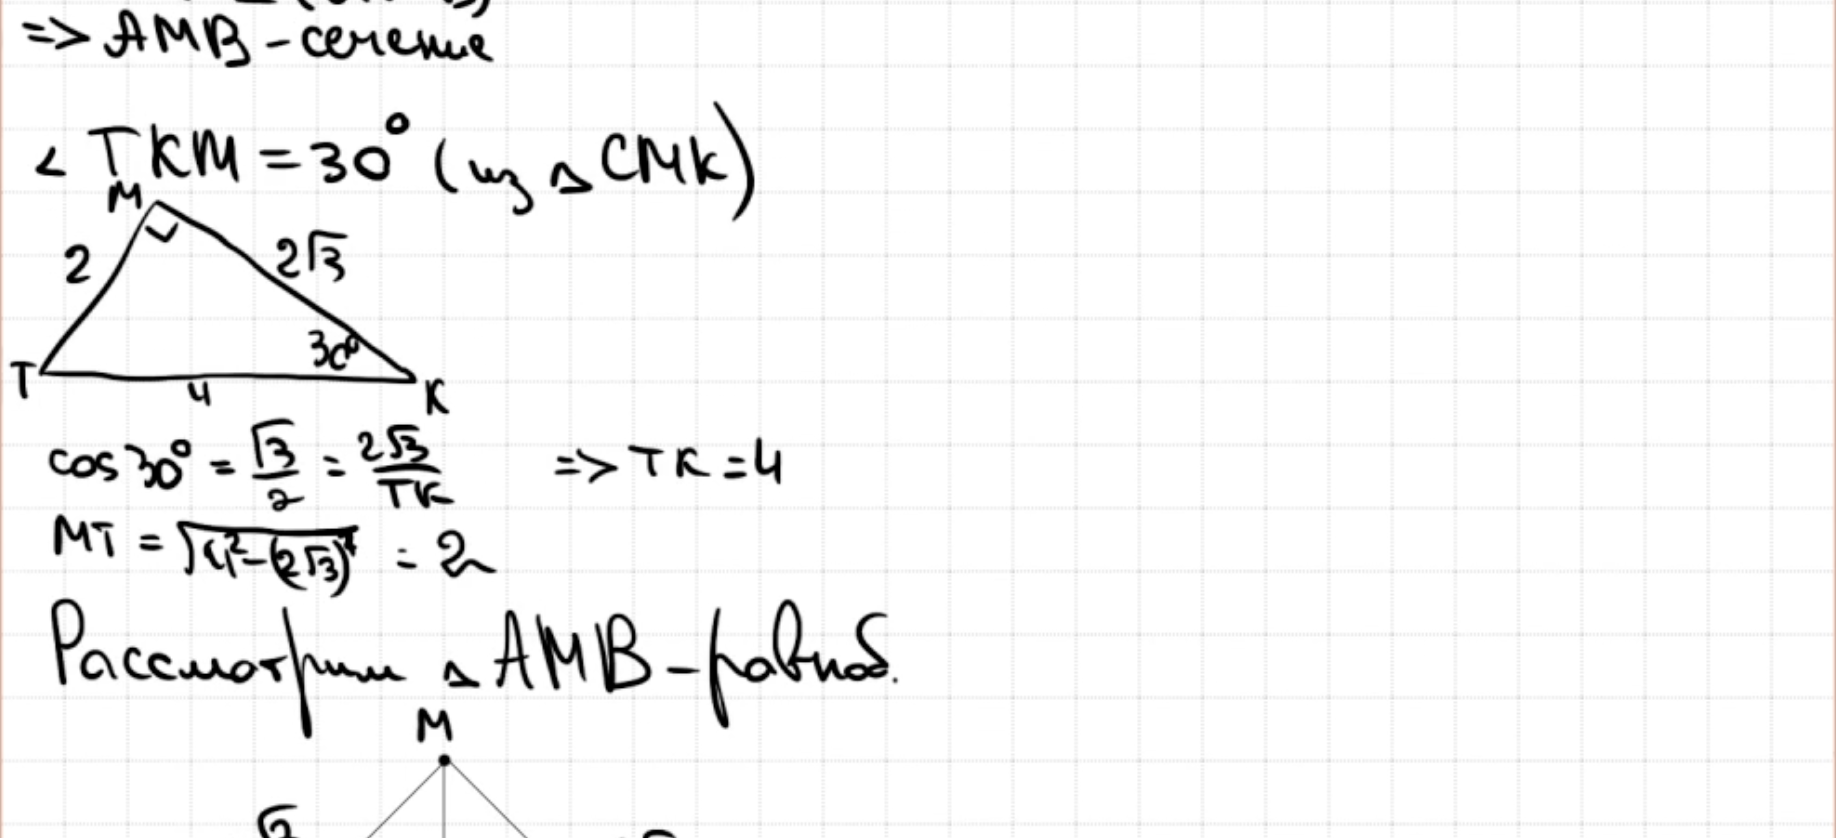 => AMB - сечение
∠ TKM = 30° (из △ CMK)
M
2
2√3
30°
T
4
K
cos 30° = √3/2 = 2√3/TK => TK = 4
MT = √(4²-(2√3)²) = 2
Рассмотрим △ AMB - равноб.
M